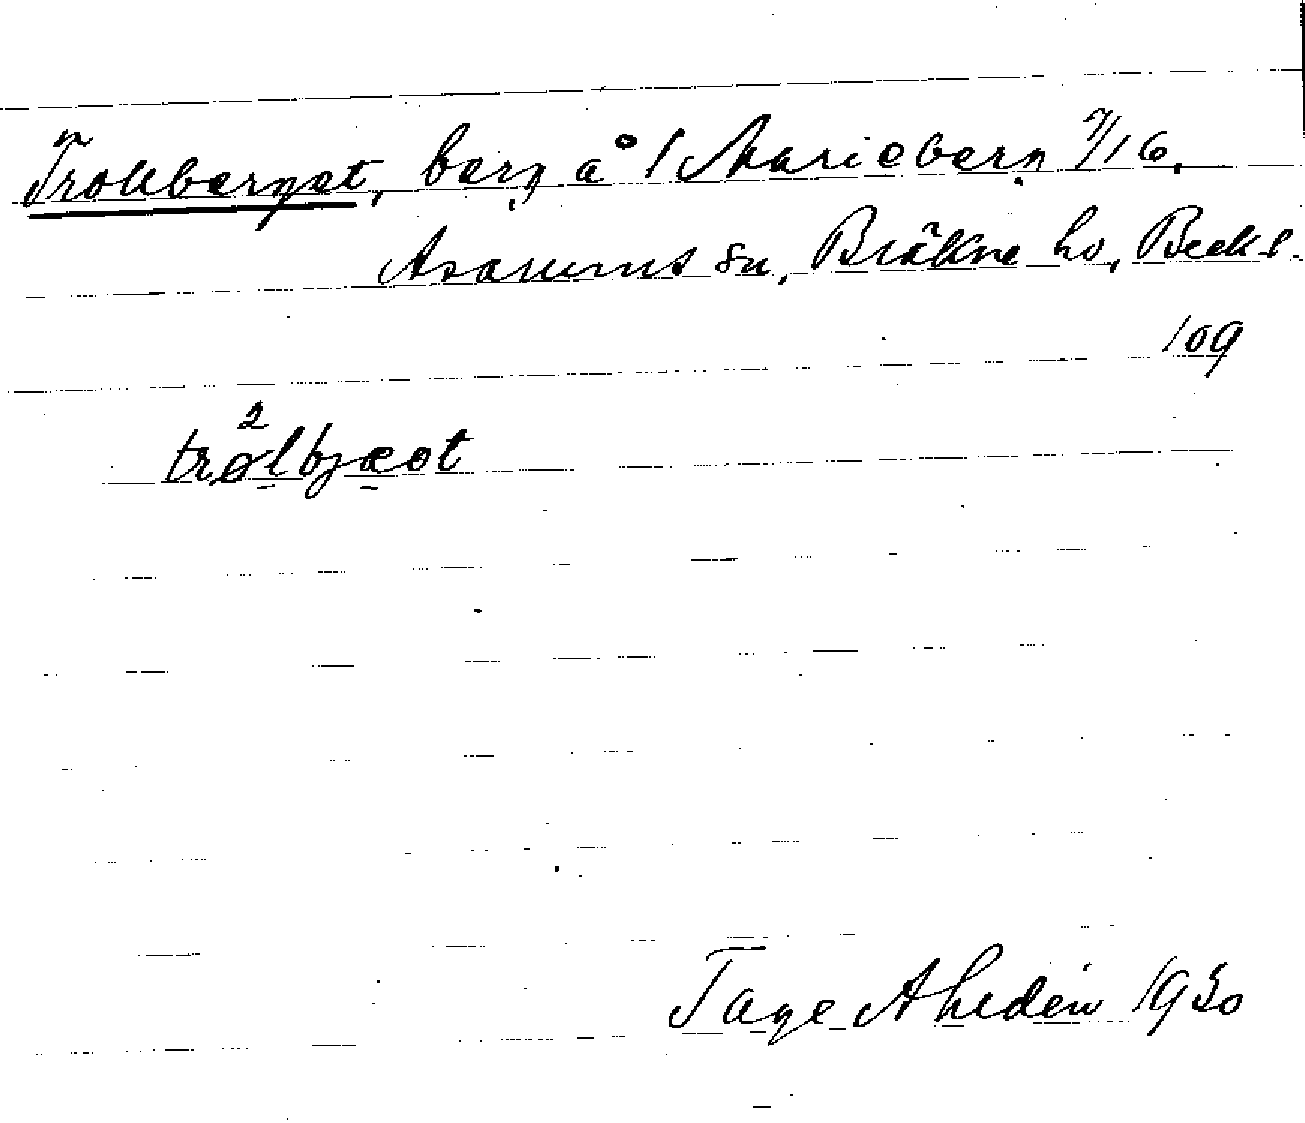 Trollberget, berg å 1 Marieberg 7/16,
Asarums sn, Bräkne hd, Blek.
109
trølbjæt
Tage Ahldén 1930